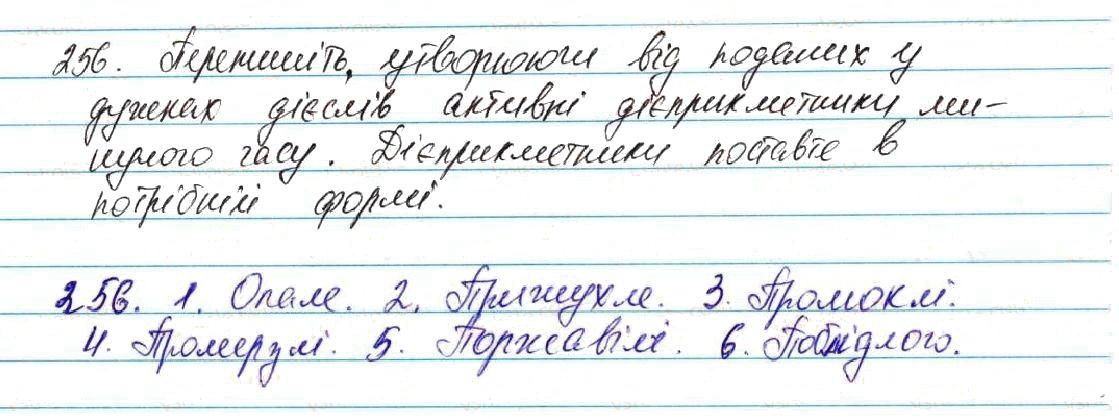 256. Перепишіть, утворюючи від поданих у
дужках дієслів активні дієприкметники ми-
нулого часу. Дієприкметники поставте в
потрібній формі.
256. 1. Опале. 2. Прижухле. 3. Промоклі.
4. Промерзлі. 5. Поржавілі. 6. Поблідлого.